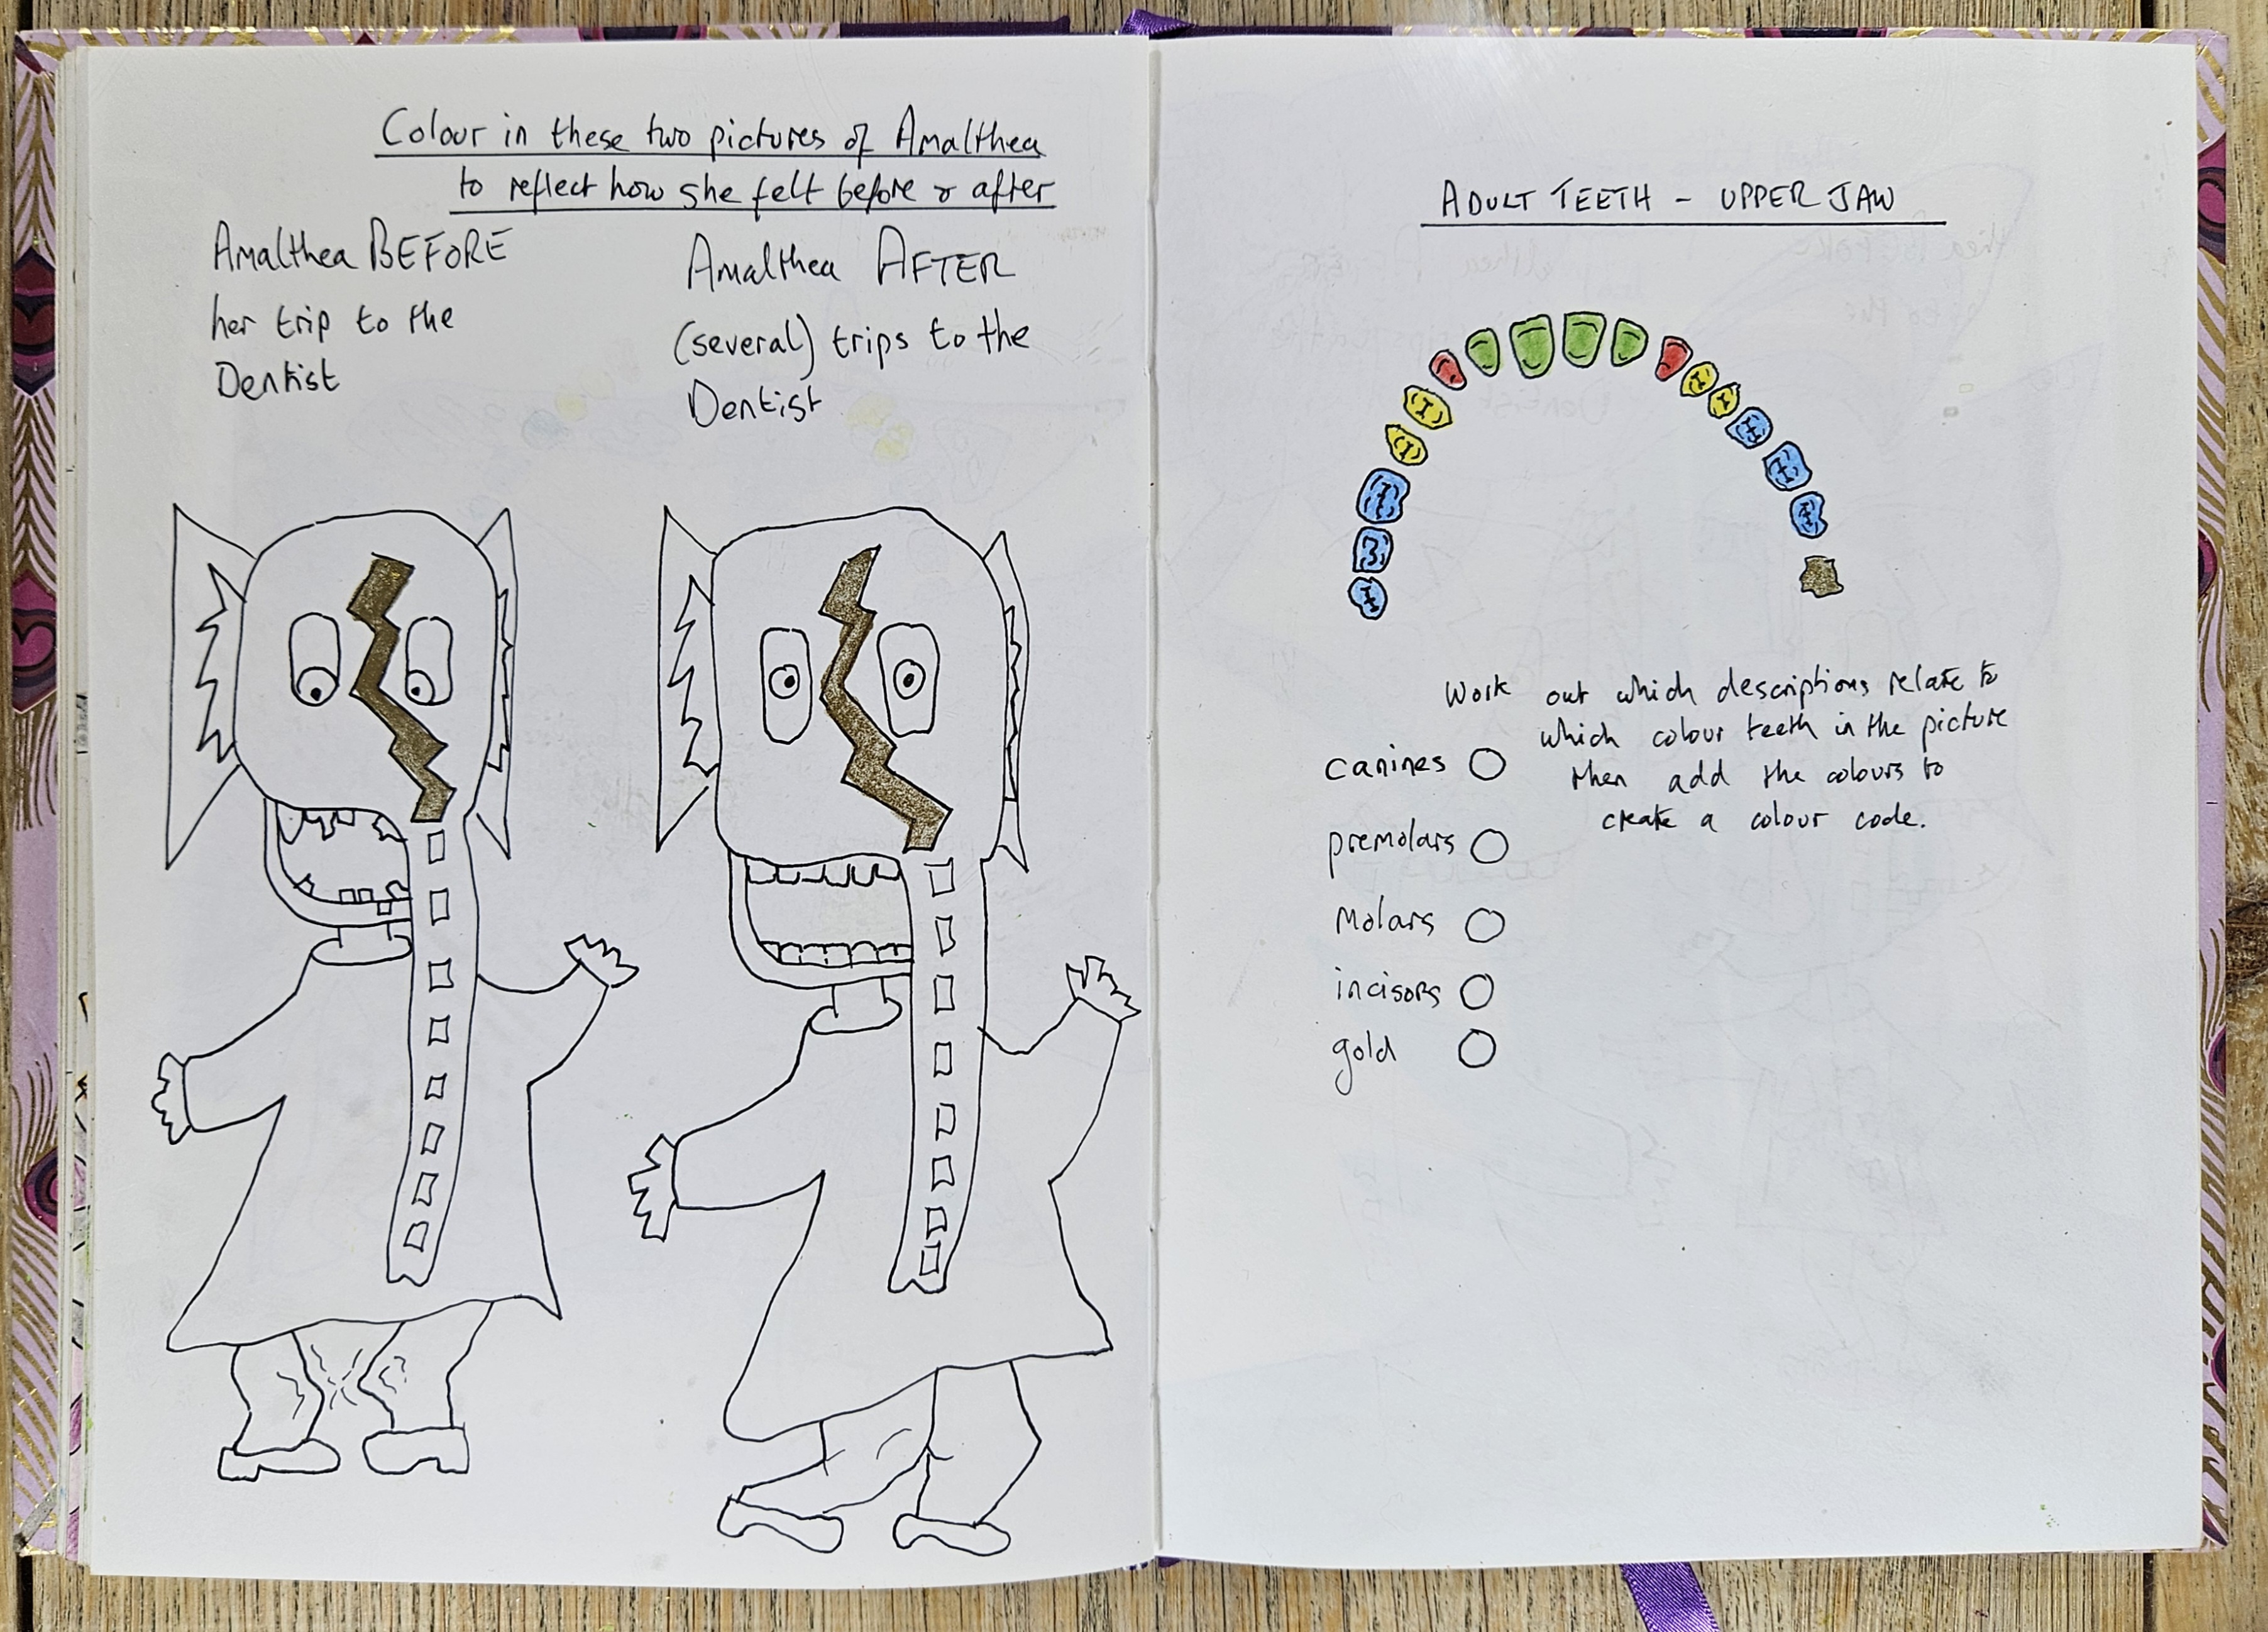 Colour in these two pictures of Amalthea
to reflect how she felt before & after
Amalthea BEFORE
her trip to the
Dentist
Amalthea AFTER
(several) trips to the
Dentist
ADULT TEETH - UPPER JAW
Work out which descriptions relate to
which colour teeth in the picture
then add the colours to
create a colour code.
canines
premolars
Molars
incisors
gold